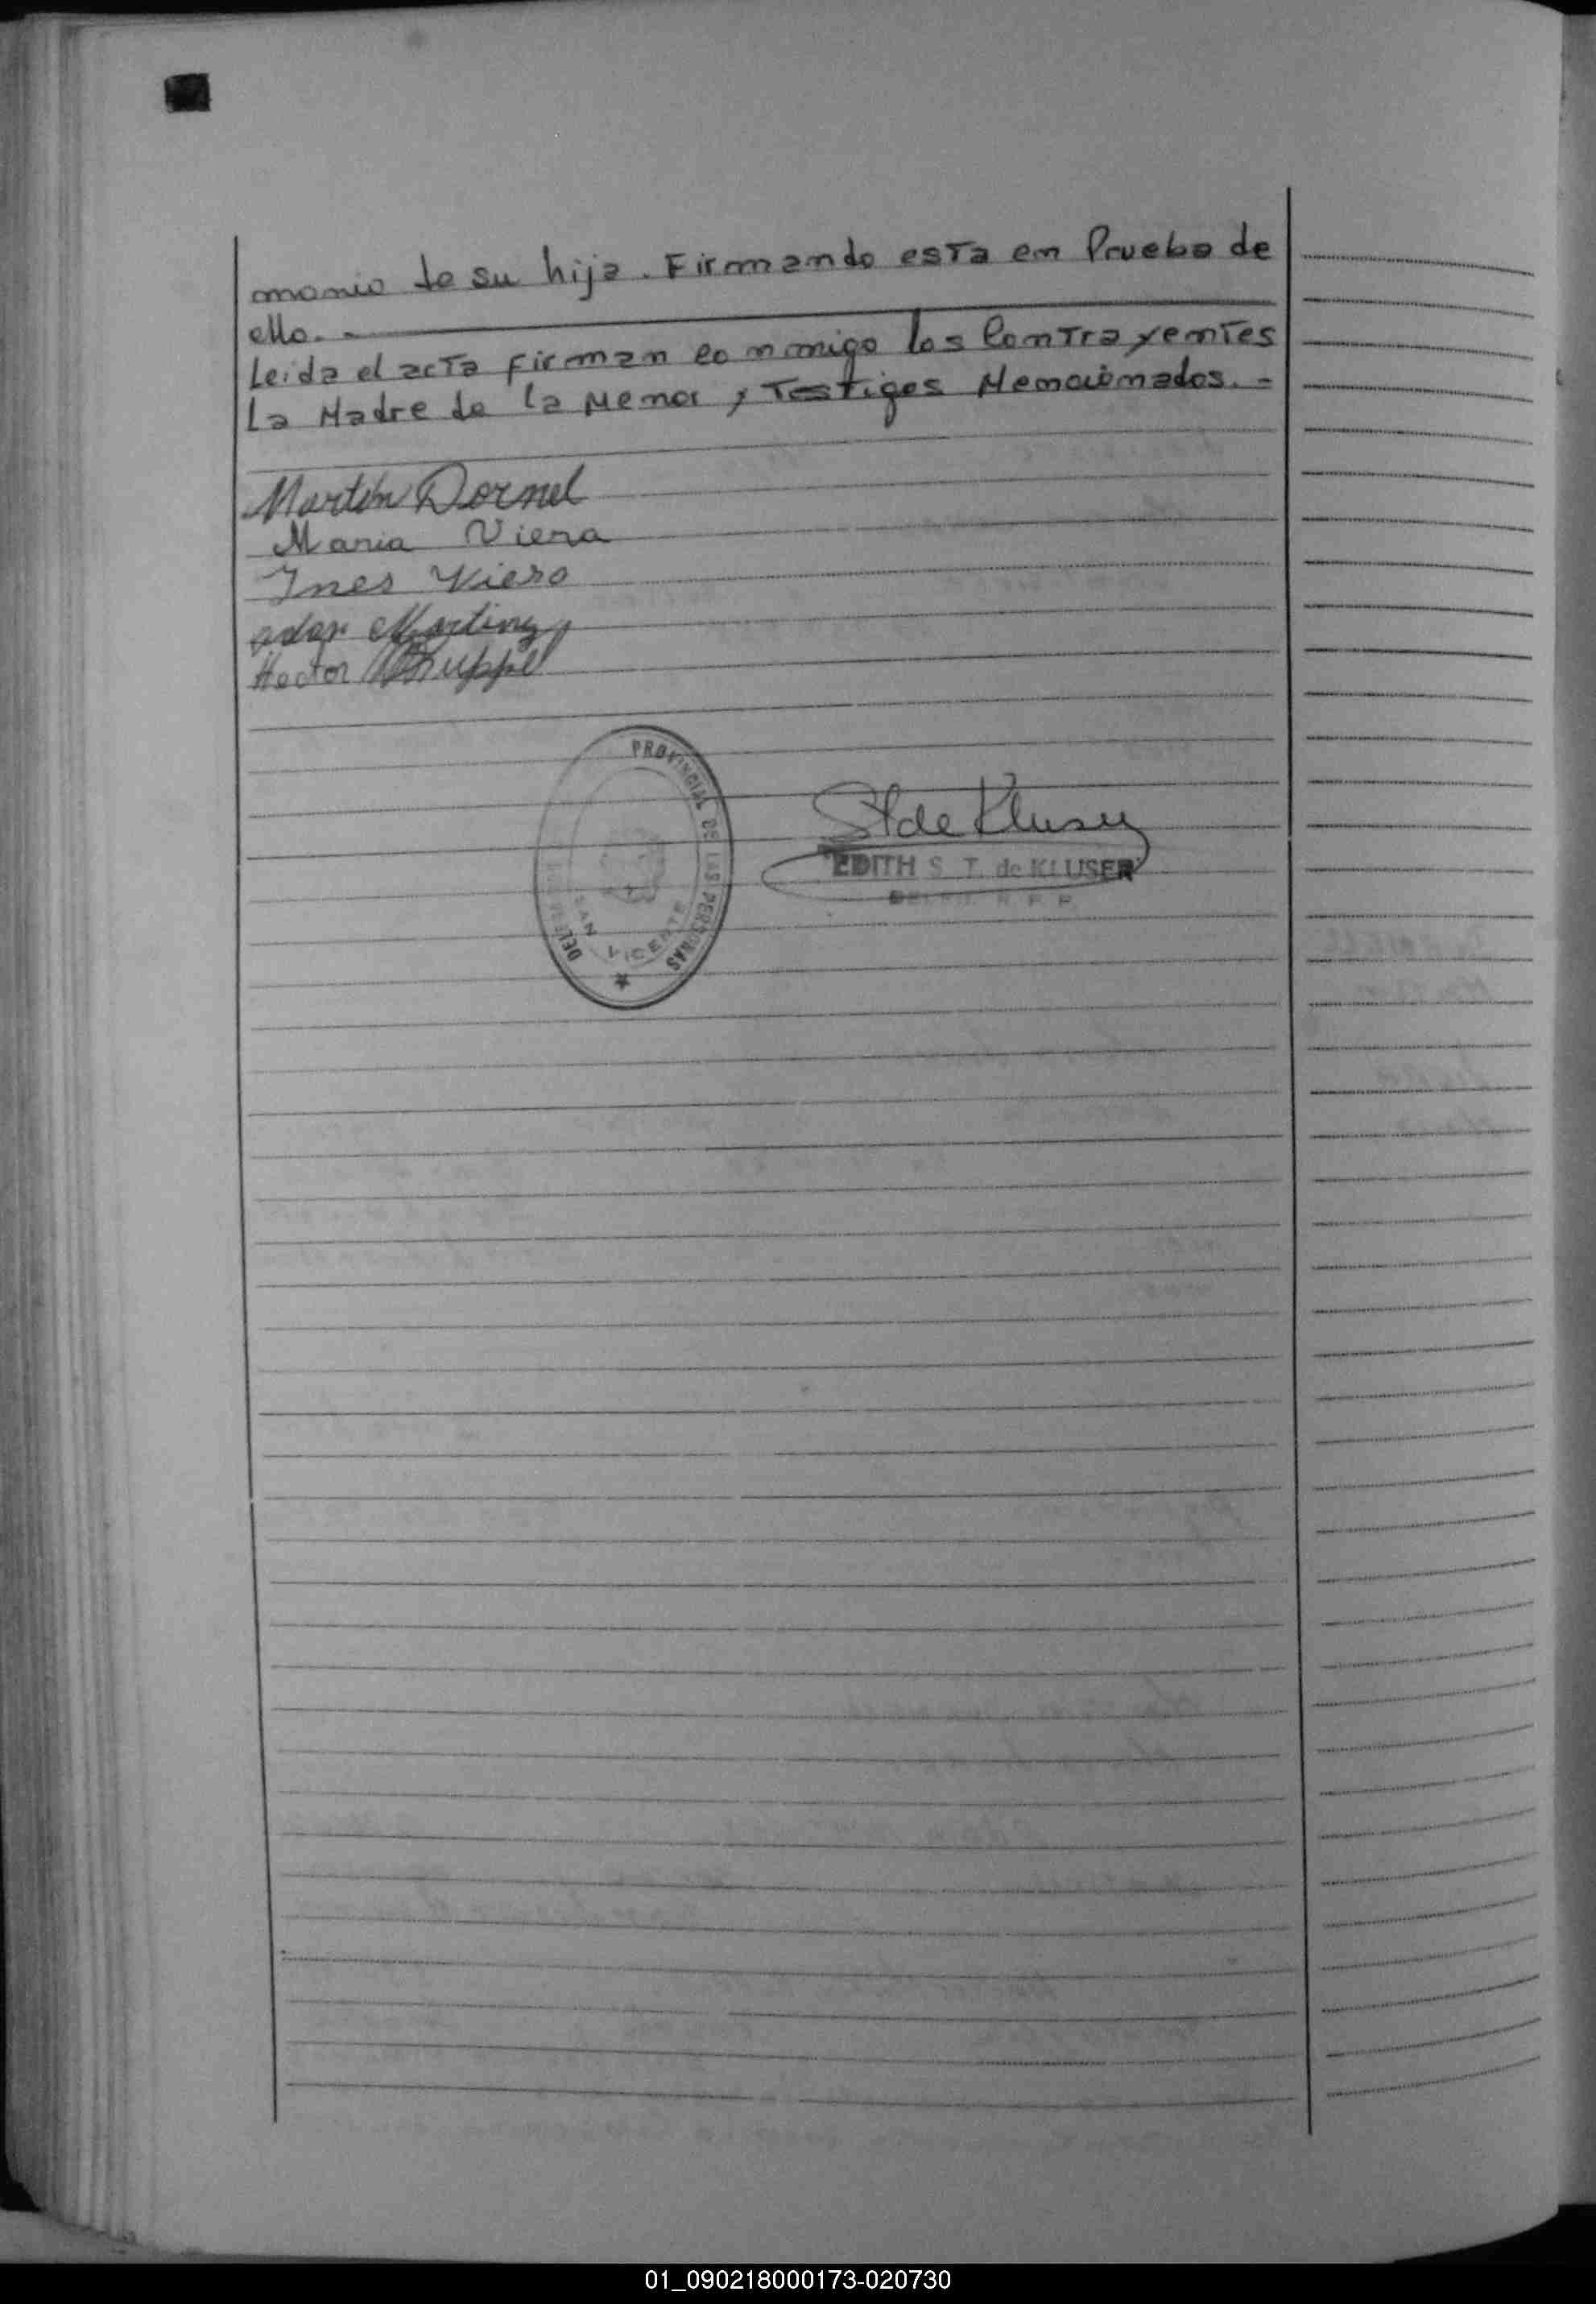 monio de su hija. Firmando esta en Prueba de
ello. -
Leida el acta Firman conmigo los Contrayentes
La Madre de la Menor, y Testigos Mencionados. =
Martin Dornel
Maria Viera
Ines Viero
Hector
PROVINCIAL DE LAS PERSONAS
SAN VICENTE
St de Kluser
EDITH S. T. de KLUSER
01_090218000173-020730